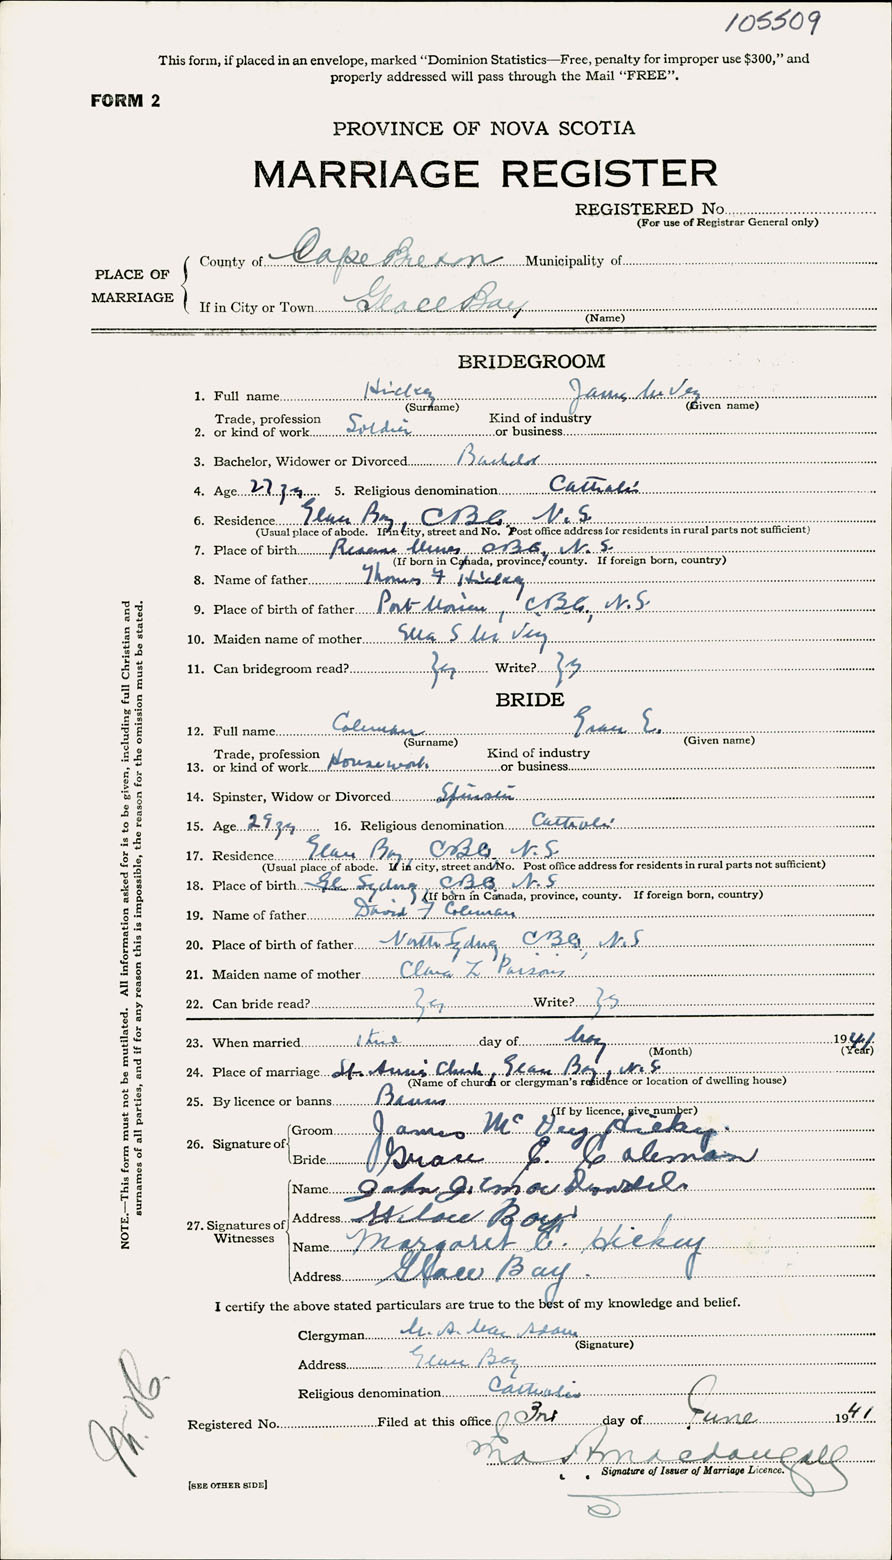 105509
This form, if placed in an envelope, marked "Dominion Statistics—Free, penalty for improper use $300," and
properly addressed will pass through the Mail "FREE".
FORM 2
PROVINCE OF NOVA SCOTIA
MARRIAGE REGISTER
REGISTERED No.
(For use of Registrar General only)
PLACE OF MARRIAGE
County of Cape Breton Municipality of
If in City or Town Glace Bay
(Name)
BRIDEGROOM
1. Full name Hickey James McVey
(Surname) (Given name)
2. Trade, profession or kind of work Soldier Kind of industry or business
3. Bachelor, Widower or Divorced Bachelor
4. Age 27 yrs 5. Religious denomination Catholic
6. Residence Glace Bay, CBCo, N.S.
(Usual place of abode. If in city, street and No. Post office address for residents in rural parts not sufficient)
7. Place of birth Reserve Mines CBCo, N.S.
(If born in Canada, province, county. If foreign born, country)
8. Name of father Thomas F Hickey
9. Place of birth of father Port Morien, CBCo, N.S.
10. Maiden name of mother Ella S McVey
11. Can bridegroom read? Yes Write? Yes
BRIDE
12. Full name Coleman Grace E.
(Surname) (Given name)
13. Trade, profession or kind of work Housework Kind of industry or business
14. Spinster, Widow or Divorced Spinster
15. Age 29 yrs 16. Religious denomination Catholic
17. Residence Glace Bay, CBCo, N.S.
(Usual place of abode. If in city, street and No. Post office address for residents in rural parts not sufficient)
18. Place of birth Gl Sydney, CBCo N.S
(If born in Canada, province, county. If foreign born, country)
19. Name of father David F Coleman
20. Place of birth of father North Sydney CBCo, N.S
21. Maiden name of mother Clara Z Parsons
22. Can bride read? Yes Write? Yes
23. When married day of May 1941
(Month) (Year)
24. Place of marriage St. Anns Church, Glace Bay, N.S
(Name of church or clergyman's residence or location of dwelling house)
25. By licence or banns Banns
(If by licence, give number)
26. Signature of Groom James McVey Hickey.
Bride Grace E. Coleman
27. Signatures of Witnesses
Name John J.
Address Glace Bay
Name Margaret C. Hickey
Address Glace Bay.
I certify the above stated particulars are true to the best of my knowledge and belief.
Clergyman M. A. Mac Adam
(Signature)
Address Glace Bay
Religious denomination Catholic
Registered No. Filed at this office 3rd day of June 1941
MacDougall
Signature of Issuer of Marriage Licence.
[SEE OTHER SIDE]
NOTE.—This form must not be mutilated. All information asked for is to be given, including full Christian and
surnames of all parties, and if for any reason this is impossible, the reason for the omission must be stated.